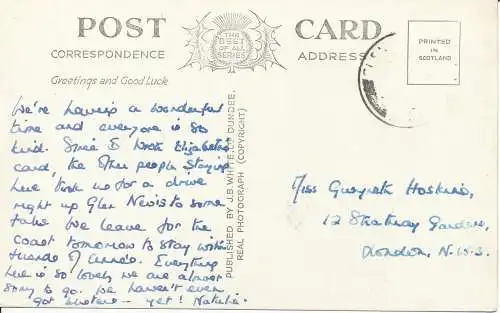 POST CARD
THE
BEST
OF ALL
SERIES
CORRESPONDENCE
ADDRESS
PRINTED
IN
SCOTLAND
Greetings and Good Luck
We're having a wonderful
time and everyone is so
kind. Since I wrote Elizabeth's
card, the other people staying
here took us for a drive
right up Glen Nevis to some
falls. We leave for the
coast tomorrow to stay with
friends of Anne's. Everything
here is so lovely we are almost
sorry to go. We haven't even
got - yet! Natalie.
PUBLISHED BY J.B.WHITE LTD DUNDEE.
REAL PHOTOGRAPH (COPYRIGHT)
Miss Gwyneth Hoskins,
12 Strathray Gardens,
London, N.W.3.